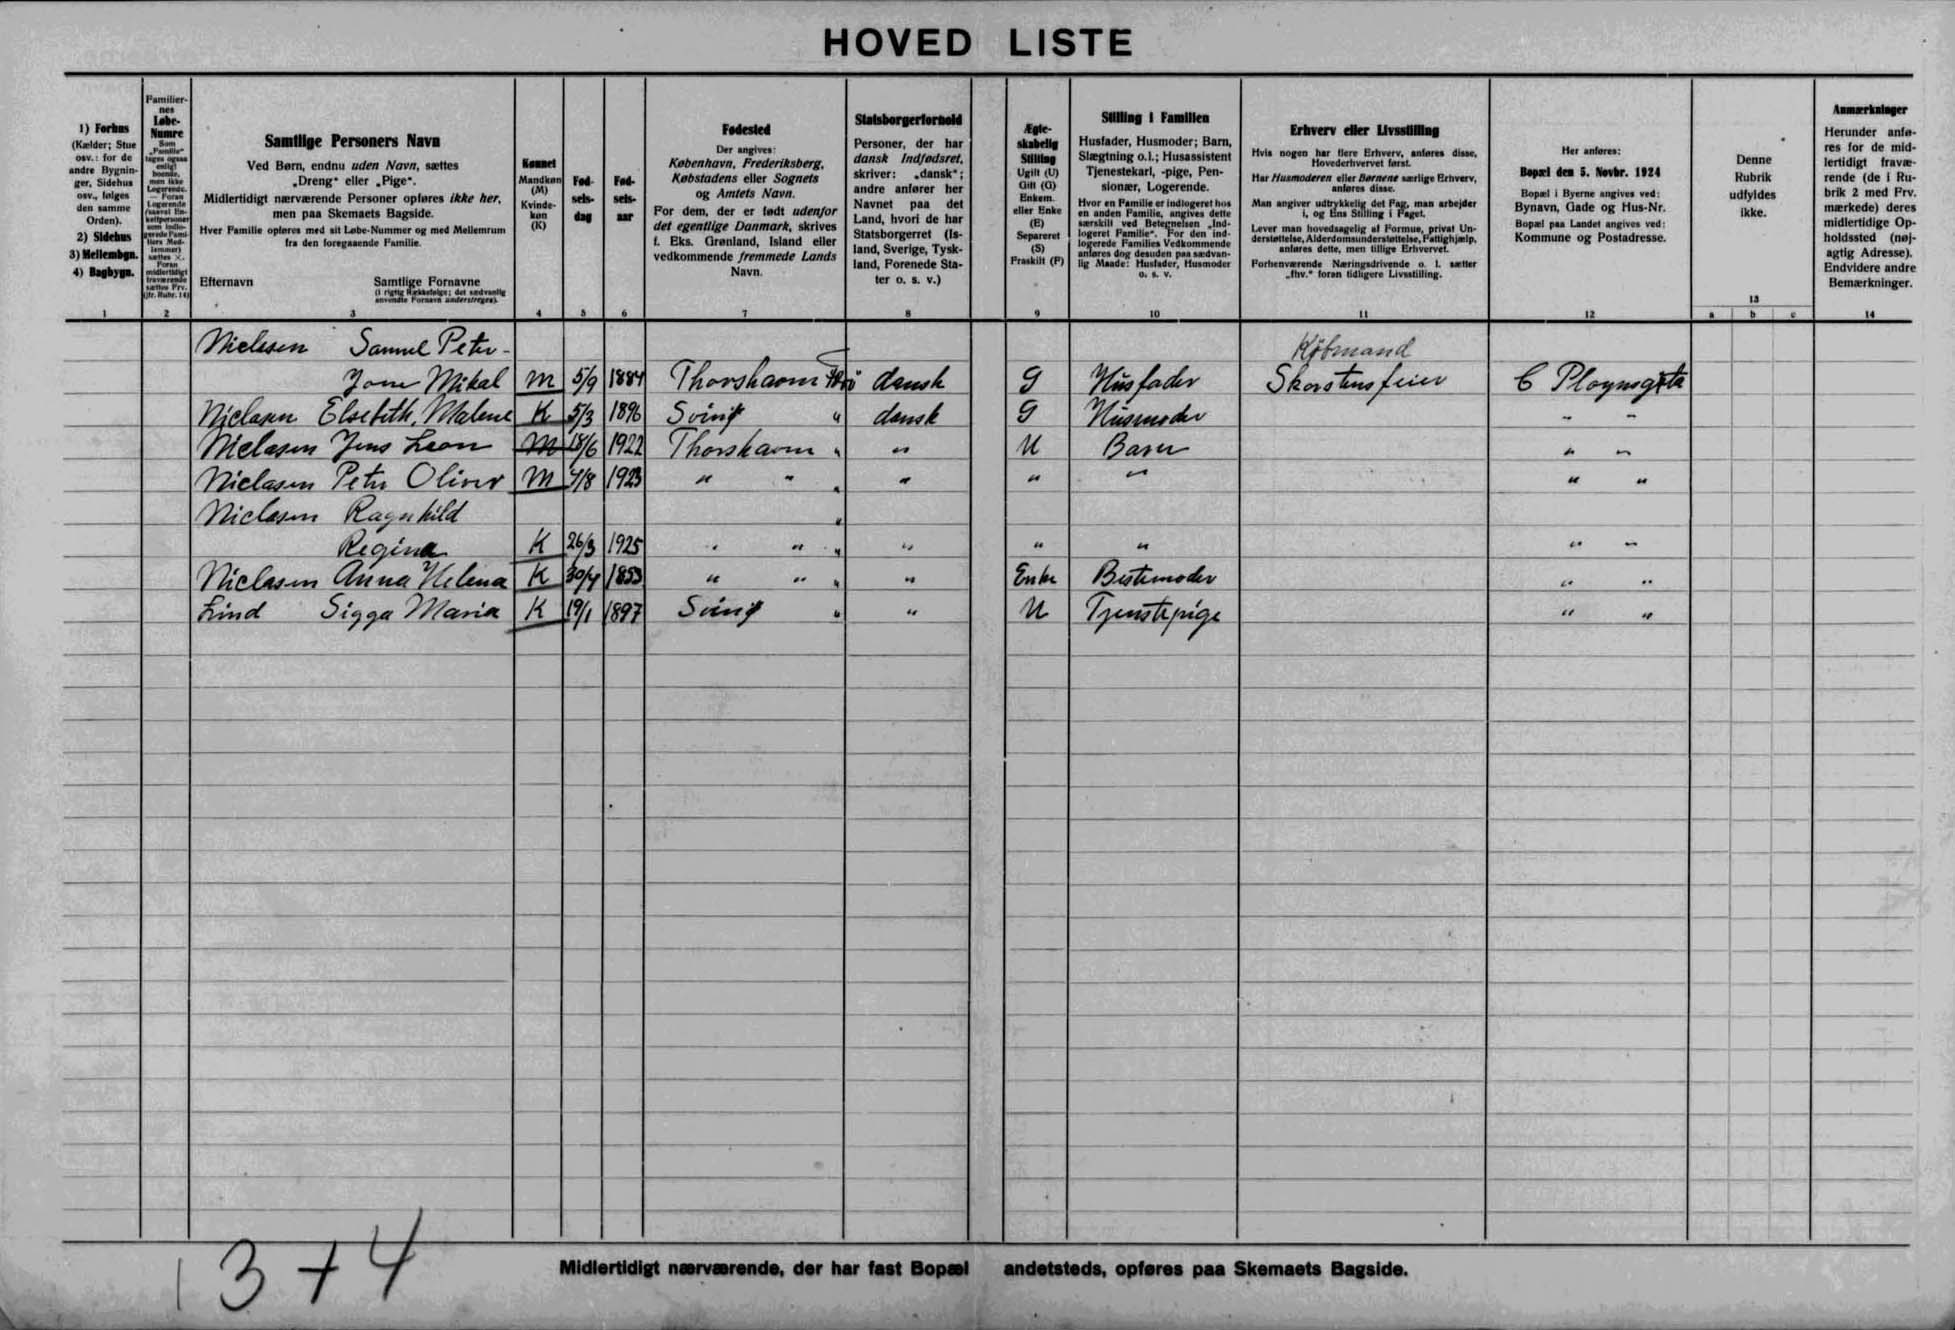 HOVED LISTE
1) Forhus
(Kælder; Stue
osv.: for de
andre Bygnin-
ger, Sidehus
osv., følges
den samme
Orden).
2) Sidehus
3) Mellembgn.
4) Bagbygn.
Familier-
nes
Løbe-
Numre
Som
„Familie“
tages ogsaa
enlig
boende,
men ikke
Logerende.
— Foran
Logerende
(saavel En-
keltpersoner
som indlo-
gerede Fami-
liers Med-
lemmer)
sættes ×.
Foran
midlertidigt
fraværende
sættes Frv.
(jfr. Rubr. 14)
Samtlige Personers Navn
Ved Børn, endnu uden Navn, sættes
„Dreng“ eller „Pige“.
Midlertidigt nærværende Personer opføres ikke her,
men paa Skemaets Bagside.
Hver Familie opføres med sit Løbe-Nummer og med Mellemrum
fra den foregaaende Familie.
Efternavn Samtlige Fornavne
(i rigtig Rækkefølge; det sædvanlig
anvendte Fornavn understreges).
Kønnet
Mandkøn
(M)
Kvinde-
køn
(K)
Fød-
sels-
dag
Fød-
sels-
aar
Fødested
Der angives:
København, Frederiksberg,
Købstadens eller Sognets
og Amtets Navn.
For dem, der er født udenfor
det egentlige Danmark, skrives
f. Eks. Grønland, Island eller
vedkommende fremmede Lands
Navn.
Statsborgerforhold
Personer, der har
dansk Indfødsret,
skriver: „dansk“;
andre anfører her
Navnet paa det
Land, hvori de har
Statsborgerret (Is-
land, Sverige, Tysk-
land, Forenede Sta-
ter o. s. v.)
Ægte-
skabelig
Stilling
Ugift (U)
Gift (G)
Enkem.
eller Enke
(E)
Separeret
(S)
Fraskilt (F)
Stilling i Familien
Husfader, Husmoder; Barn,
Slægtning o.l.; Husassistent
Tjenestekarl, -pige, Pen-
sionær, Logerende.
Hvor en Familie er indlogeret hos
en anden Familie, angives dette
særskilt ved Betegnelsen „Ind-
logeret Familie“. For den ind-
logerede Families Vedkommende
anføres dog desuden paa sædvan-
lig Maade: Husfader, Husmoder
o. s. v.
Erhverv eller Livsstilling
Hvis nogen har flere Erhverv, anføres disse,
Hovederhvervet først.
Har Husmoderen eller Børnene særlige Erhverv,
anføres disse.
Man angiver udtrykkelig det Fag, man arbejder
i, og Ens Stilling i Faget.
Lever man hovedsagelig af Formue, privat Un-
derstøttelse, Alderdomsunderstøttelse, Fattighjælp,
anføres dette, men tillige Erhvervet.
Forhenværende Næringsdrivende o. l. sætter
„fhv.“ foran tidligere Livsstilling.
Her anføres:
Bopæl den 5. Novbr. 1924
Bopæl i Byerne angives ved:
Bynavn, Gade og Hus-Nr.
Bopæl paa Landet angives ved:
Kommune og Postadresse.
Denne
Rubrik
udfyldes
ikke.
Anmærkninger
Herunder anfø-
res for de mid-
lertidigt fravæ-
rende (de i Ru-
brik 2 med Frv.
mærkede) deres
midlertidige Op-
holdssted (nøj-
agtig Adresse).
Endvidere andre
Bemærkninger.
1 2 3 4 5 6 7 8 9 10 11 12 13 14
a b c
Niclasen Samuel Peter- Købmand
Mikal M 5/9 1884 Thorshavn dansk G Husfader Skorstensfeier
Niclasen Elsebeth Malene K 5/3 1896 " dansk G Husmoder " "
Niclasen Jens Leon M 18/6 1922 Thorshavn " " U Barn " "
Niclasen Peter Oliver M 4/8 1923 " " " " " " " "
Niclasen Ragnhild "
Regina K 26/3 1925 " " " " " " " "
Niclasen Anna Helena K 30/4 1853 " " " " Enke Bestemoder " "
Lind Sigga Maria K 19/1 1897 " " U Tjenstepige " "
Midlertidigt nærværende, der har fast Bopæl andetsteds, opføres paa Skemaets Bagside.
3+4